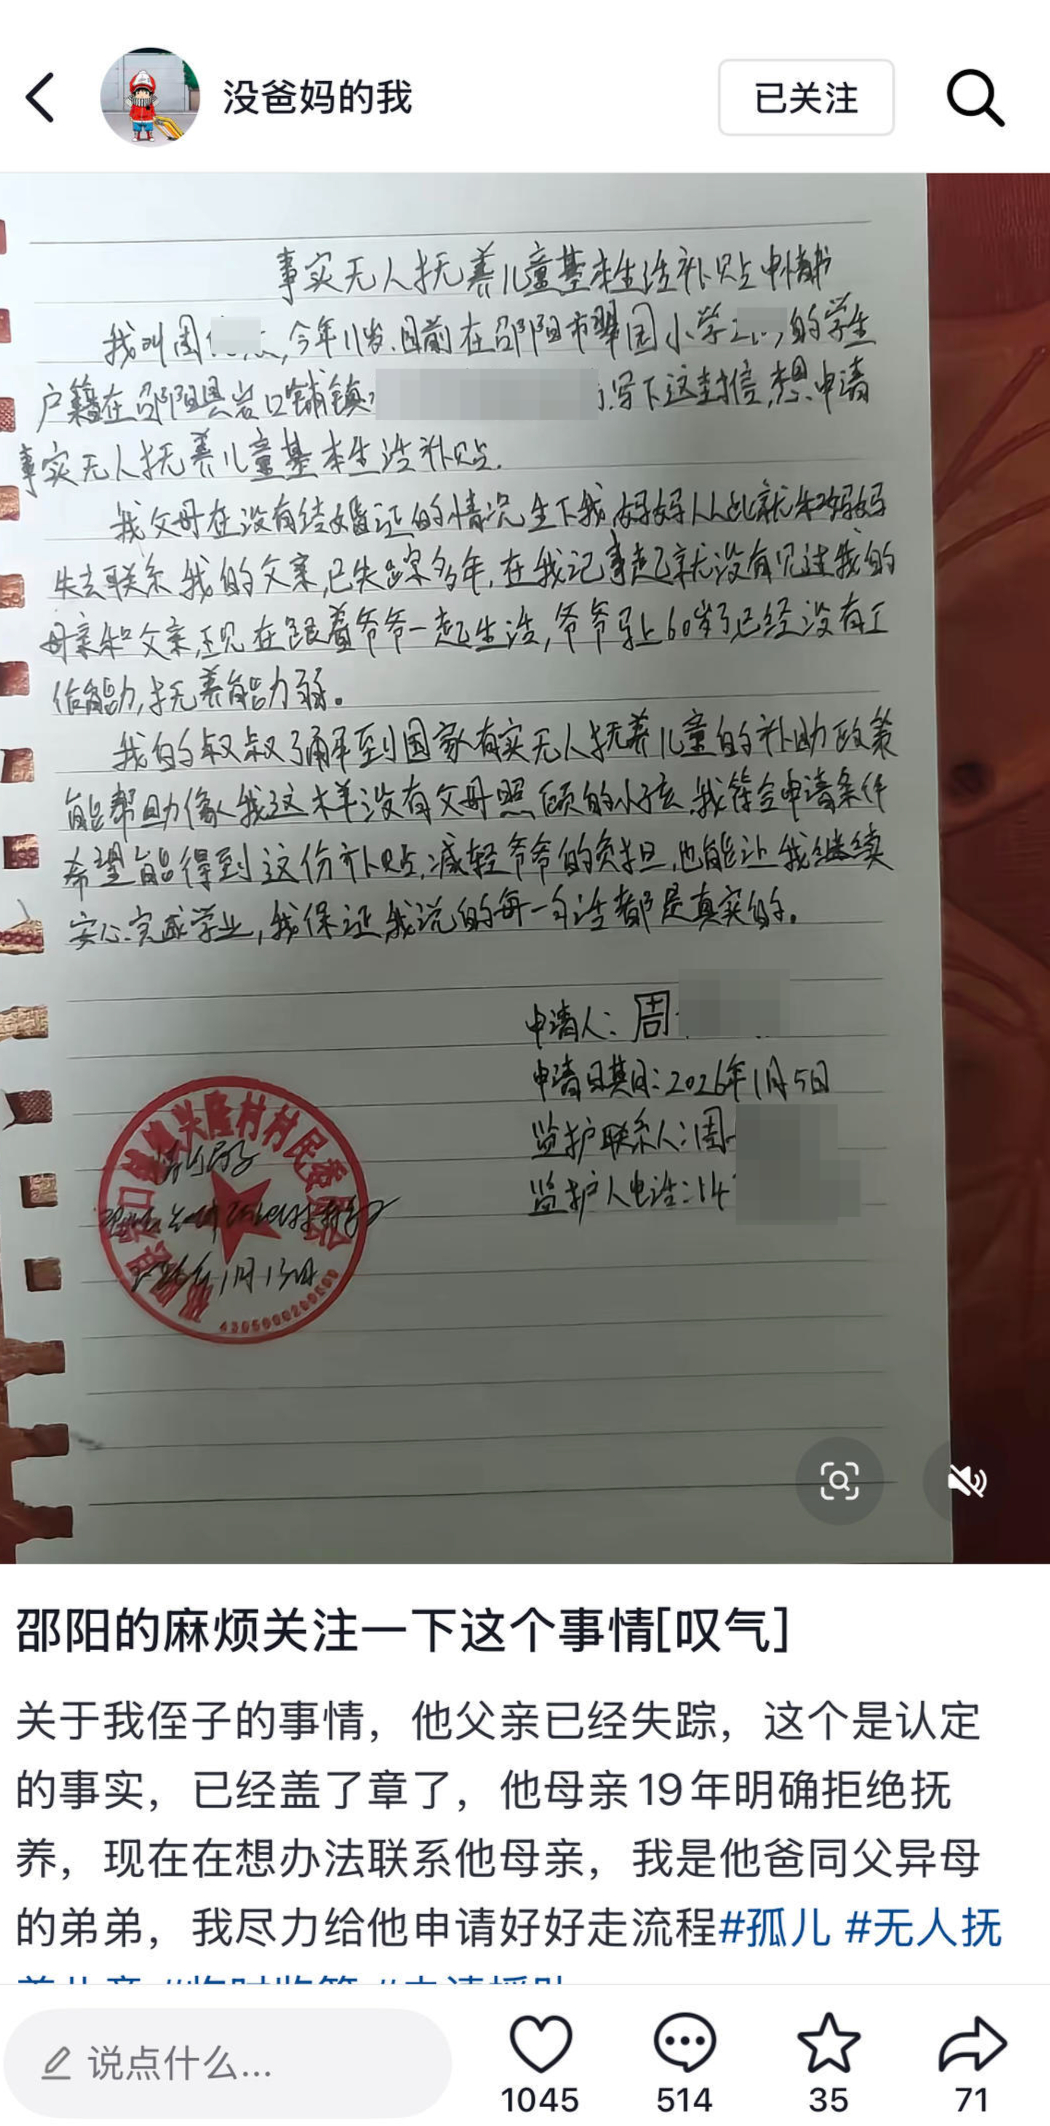 没爸妈的我
已关注
事实无人抚养儿童基本生活补贴申请书
我叫周 今年11岁.目前在邵阳市翠园小学 的学生
户籍在邵阳县岩口铺镇 写下这封信,想申请
事实无人抚养儿童基本生活补贴.
我父母在没有结婚证的情况生下我,妈妈从此就和妈妈
失去联系,我的父亲,已失踪多年,在我记事起就没有见过我的
母亲和父亲,现在跟着爷爷一起生活,爷爷马上60岁了已经没有工
作能力,抚养能力弱。
我的叔叔了解到国家有实无人抚养儿童的补助政策
能帮助像我这样没有父母照顾的小孩,我符合申请条件
希望能得到这份补贴,减轻爷爷的负担,也能让我继续
安心完成学业,我保证我说的每一句话都是真实的。
申请人:周
申请日期:2026年1月5日
监护联系人:周
监护人电话:14
岩口铺镇兴隆村村民委员会
情况属实
1月13日
邵阳的麻烦关注一下这个事情[叹气]
关于我侄子的事情，他父亲已经失踪，这个是认定
的事实，已经盖了章了，他母亲19年明确拒绝抚
养，现在在想办法联系他母亲，我是他爸同父异母
的弟弟，我尽力给他申请好好走流程#孤儿 #无人抚
说点什么...
1045
514
35
71